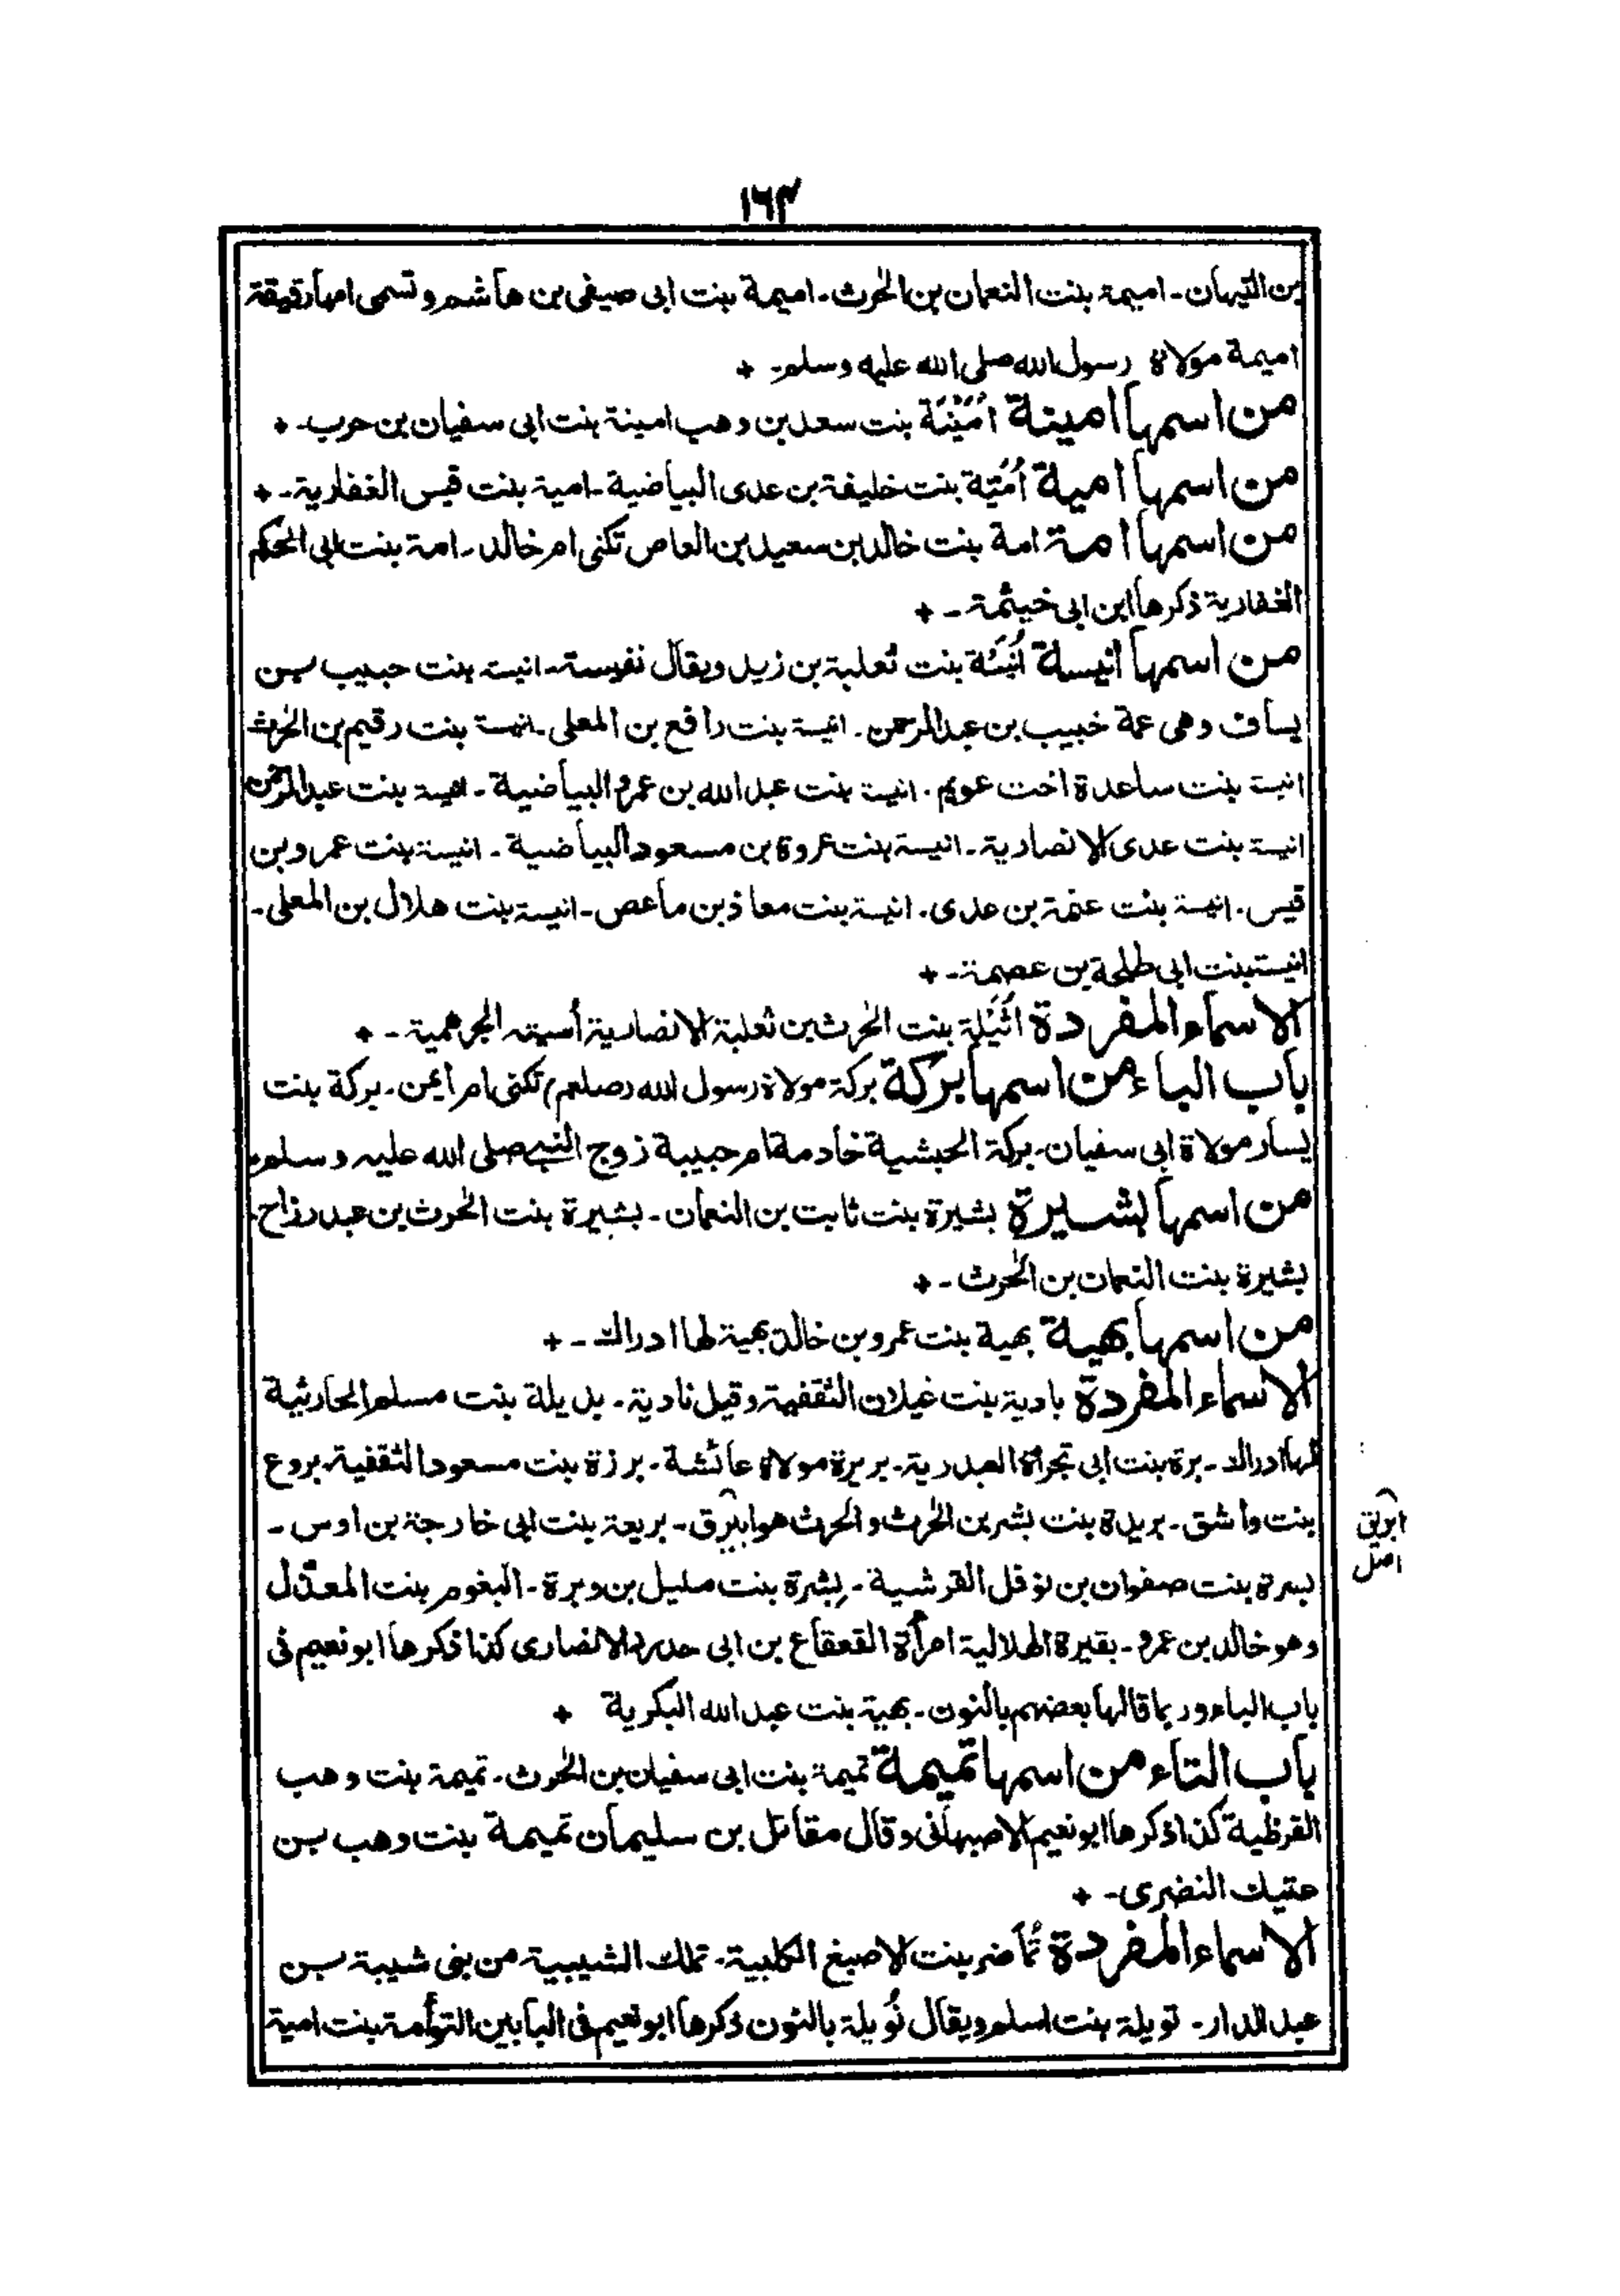 ١٦٣
بن التيهان۔ اميمة بنت النعمان بن الحٰرث۔ اميمة بنت ابى صيفى بن هاشم وتسمى امها رقيقة
اميمة مولاة رسول الله صلى الله عليه وسلم۔ +
من اسمها امينة اُمَيْنَة بنت سعد بن وهب امينة بنت ابى سفيان بن حرب۔ +
من اسمها امية اُمَيّة بنت خليفة بن عدى البياضية۔ امية بنت قيس الغفارية۔ +
من اسمها امة امة بنت خالد بن سعيد بن العاص تكنى ام خالد۔ امة بنت ابى الحكم
الغفارية ذكرها ابن ابى خيثمة۔ +
من اسمها انيسة اُنَيسَة بنت ثعلبة بن زيد ويقال نفيسة۔ انيسة بنت حبيب بن
يساف وهى عمة خبيب بن عبدالرحمن۔ انيسة بنت رافع بن المعلى۔ انيسة بنت رقيم بن الحٰرث
انيسة بنت ساعدة اخت عويم۔ انيسة بنت عبد الله بن عمرو البياضية۔ انيسة بنت عبدالرحمن
انيسة بنت عدى الانصارية۔ انيسة بنت عروة بن مسعود البياضية۔ انيسة بنت عمرو بن
قيس۔ انيسة بنت عنمة بن عدى۔ انيسة بنت معاذ بن ماعص۔ انيسة بنت هلال بن المعلى۔
انيسة بنت ابى طلحة بن عصمة۔ +
الاسماء المفردة اُثَيْلة بنت الحٰرث بن ثعلبة الانصارية أسيته الجرهمية۔ +
باب الباء من اسمها بركة بركة مولاة رسول الله (صلعم) تكنى ام أيمن۔ بركة بنت
يسار مولاة ابى سفيان۔ بركة الحبشية خادمة ام حبيبة زوج النبى صلى الله عليه وسلم
من اسمها بشيرة بشيرة بنت ثابت بن النعمان۔ بشيرة بنت الحٰرث بن عبد رزاح۔
بشيرة بنت النعمان بن الحٰرث۔ +
من اسمها بهية بهية بنت عمرو بن خالد بهية لها ادراك۔ +
الاسماء المفردة بادية بنت غيلان الثقفية وقيل نادية۔ بديلة بنت مسلم الحارثية
لها ادراك۔ برة بنت ابى تجراة العبدرية۔ بريرة مولاة عائشة۔ برزة بنت مسعود الثقفية۔ بروع
بنت واشق۔ بريدة بنت بشر بن الحٰرث والحٰرث هو ابيرق۔ بريعة بنت ابى خارجة بن اوس۔
ابرق
اصل
بسرة بنت صفوان بن نوفل القرشية۔ بشرة بنت مليل بن وبرة۔ البغوم بنت المعذّل
وهو خالد بن عمرو۔ بقيرة الهلالية امرأة القعقاع بن ابى حدرد الانصارى كذا ذكرها ابو نعيم فى
باب الباء وربما قالها بعضهم بالنون۔ بهية بنت عبد الله البكرية +
باب التاء من اسمها تميمة تميمة بنت ابى سفيان بن الحٰرث۔ تميمة بنت وهب
القرظية كذا ذكرها ابو نعيم الاصبهانى وقال مقاتل بن سليمان تميمة بنت وهب بن
عتيك النضرى۔ +
الاسماء المفردة تُماضر بنت الاصبغ الكلبية۔ تملك الشيبية من بنى شيبة بن
عبد الدار۔ تويلة بنت اسلم ويقال نُويلة بالنون ذكرها ابو نعيم فى البابين التوأمة بنت امية